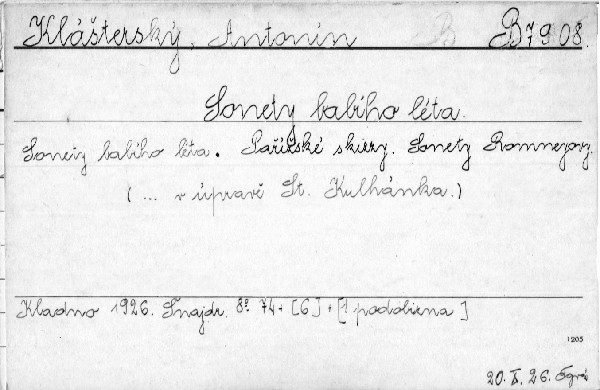 Klášterský, Antonín B B 7908.
Sonety babího léta.
Sonety babího léta. Pařížské skizzy. Sonety Romneyovy.
( ... v úpravě St. Kulhánka.)
Kladno 1926. Šnajdr. 8° 74 + [6] + [1 podobizna]
1205
20. X. 26.